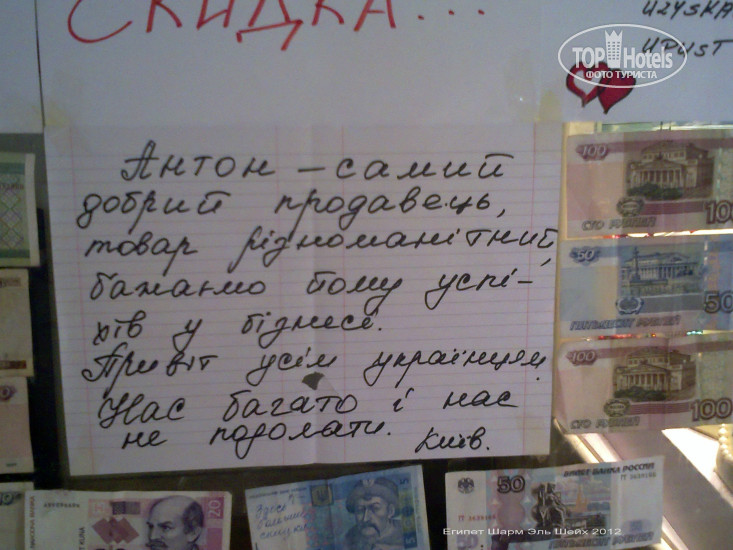 СКИДКА...
UZYSKA
UPUST
TOP Hotels
ФОТО ТУРИСТА
Антон – самий
добрий продавець,
товар різноманітний,
бажаємо йому успі-
хів у бізнесі.
Привіт усім українцям.
Нас багато і нас
не подолати. Київ.
100
СТО РУБЛЕЙ 100
50
ПЯТЬДЕСЯТ РУБЛЕЙ 50
100
СТО РУБЛЕЙ 100
20
5
50 БИЛЕТ БАНКА РОССИИ
Египет Шарм Эль Шейх 2012